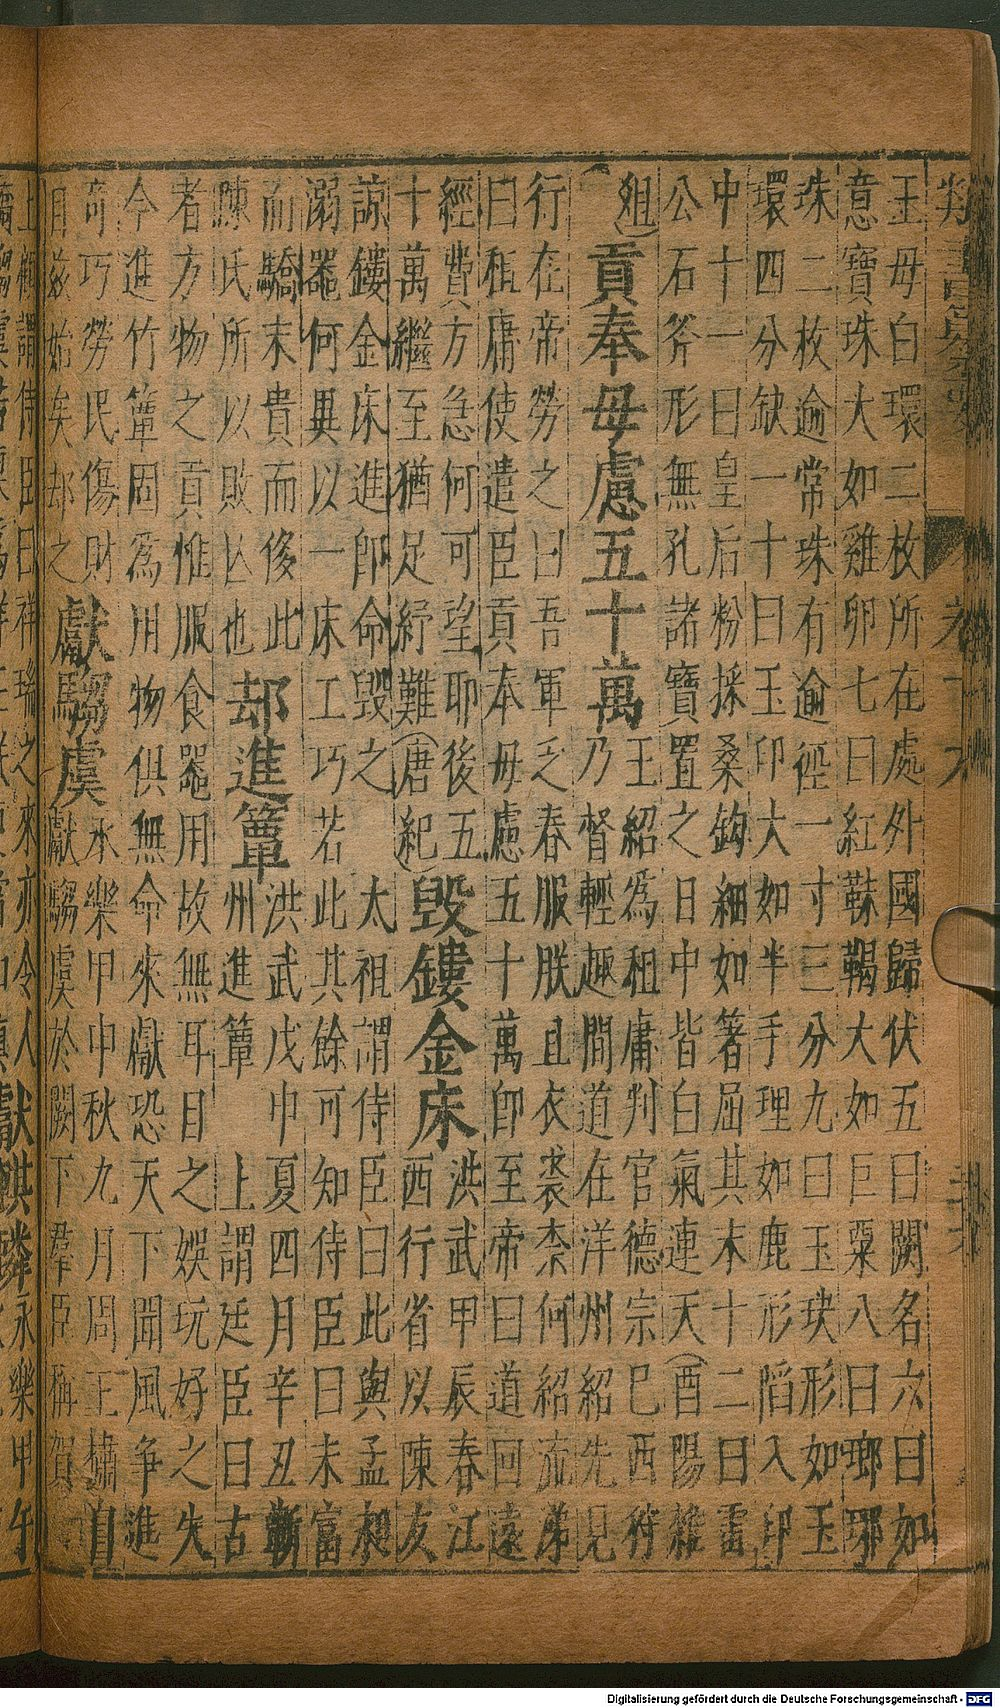 王母白環二枚所在處外國歸伏五曰闕名六曰如
意寶珠大如雞卵七曰紅靺鞨大如巨粟八曰瑯琊
珠二枚逾常珠有逾徑一寸三分九曰玉玦形如玉
環四分缺一十曰玉印大如半手理如鹿形陷入印
中十一曰皇后粉採桑鈎細如箸屈其末十二曰雷
公石斧形無孔諸寶置之日中皆白氣連天(酉陽雜
俎)
貢奉毋慮五十萬
王紹為租庸判官德宗巳西狩
乃督輕趣間道在洋州紹先見
行在帝勞之曰吾軍乏春服朕且衣裘柰何紹流涕
曰租庸使遣臣貢奉毋慮五十萬即至帝曰道回遠
經費方急何可望耶後五
十萬繼至猶足紓難(唐紀)
毀鏤金床
洪武甲辰春江
西行省以陳友
諒鏤金床進即命毀之
太祖謂侍臣曰此與孟昶
溺器何異以一床工巧若
此其餘可知侍臣曰未富
而驕末貴而侈此
陳氏所以敗亾也
却進簟
洪武戊申夏四月辛丑蘄
州進簟
上謂廷臣曰古
者方物之貢惟服食器用故無耳目之娛玩好之失
今進竹簟固爲用物俱無命來獻恐天下聞風爭進
奇巧勞民傷財
自茲始矣却之
獻騶虞
永樂甲申秋九月周王橚自
獻騶虞於闕下羣臣稱賀
上
謂侍臣曰祥瑞之來亦令人
獻麒麟
永樂甲午
Digitalisierung gefördert durch die Deutsche Forschungsgemeinschaft - DFG